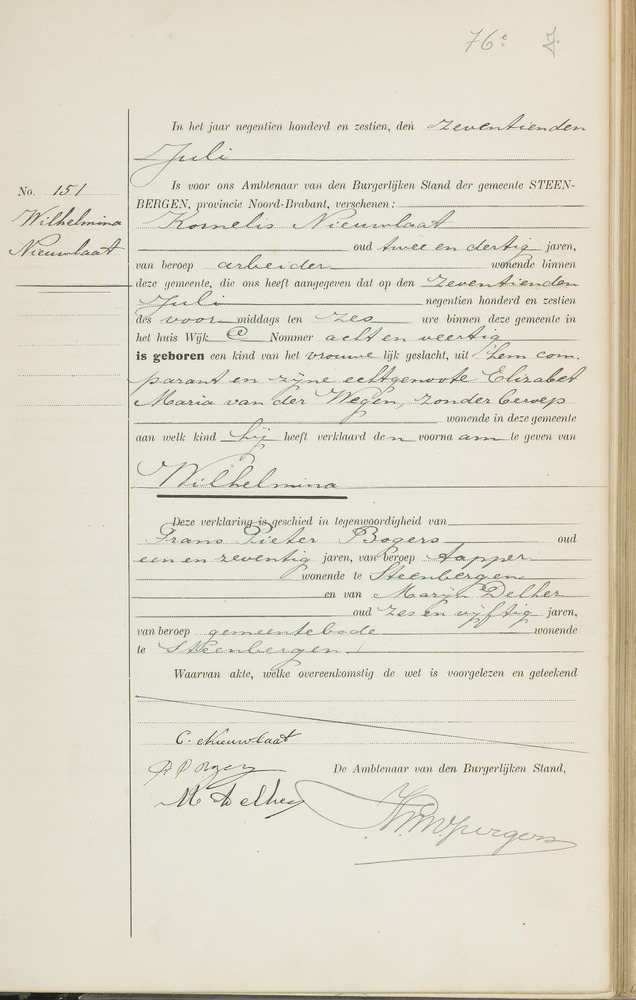 76e
In het jaar negentien honderd en zestien, den zeventienden
Juli
No. 151
Wilhelmina
Nieuwlaat
Is voor ons Ambtenaar van den Burgerlijken Stand der gemeente STEEN-
BERGEN, provincie Noord-Brabant, verschenen:
Kornelis Nieuwlaat
oud twee en dertig jaren,
van beroep arbeider wonende binnen
deze gemeente, die ons heeft aangegeven dat op den zeventienden
Juli negentien honderd en zestien
des voor middags ten zes ure binnen deze gemeente in
het huis Wijk C Nommer acht en veertig
is geboren een kind van het vrouwe lijk geslacht, uit hem com-
parant en zijne echtgenoote Elizabet
Maria van der Wegen, zonder beroep
wonende in deze gemeente
aan welk kind hij heeft verklaard den voornaam te geven van
Wilhelmina
Deze verklaring is geschied in tegenwoordigheid van
Frans Pieter Bogers oud
een en zeventig jaren, van beroep tapper
wonende te Steenbergen
en van Marijn Delhez
oud zes en vijftig jaren,
van beroep gemeentebode wonende
te Steenbergen.
Waarvan akte, welke overeenkomstig de wet is voorgelezen en geteekend
C. Nieuwlaat
De Ambtenaar van den Burgerlijken Stand,
M Delhez